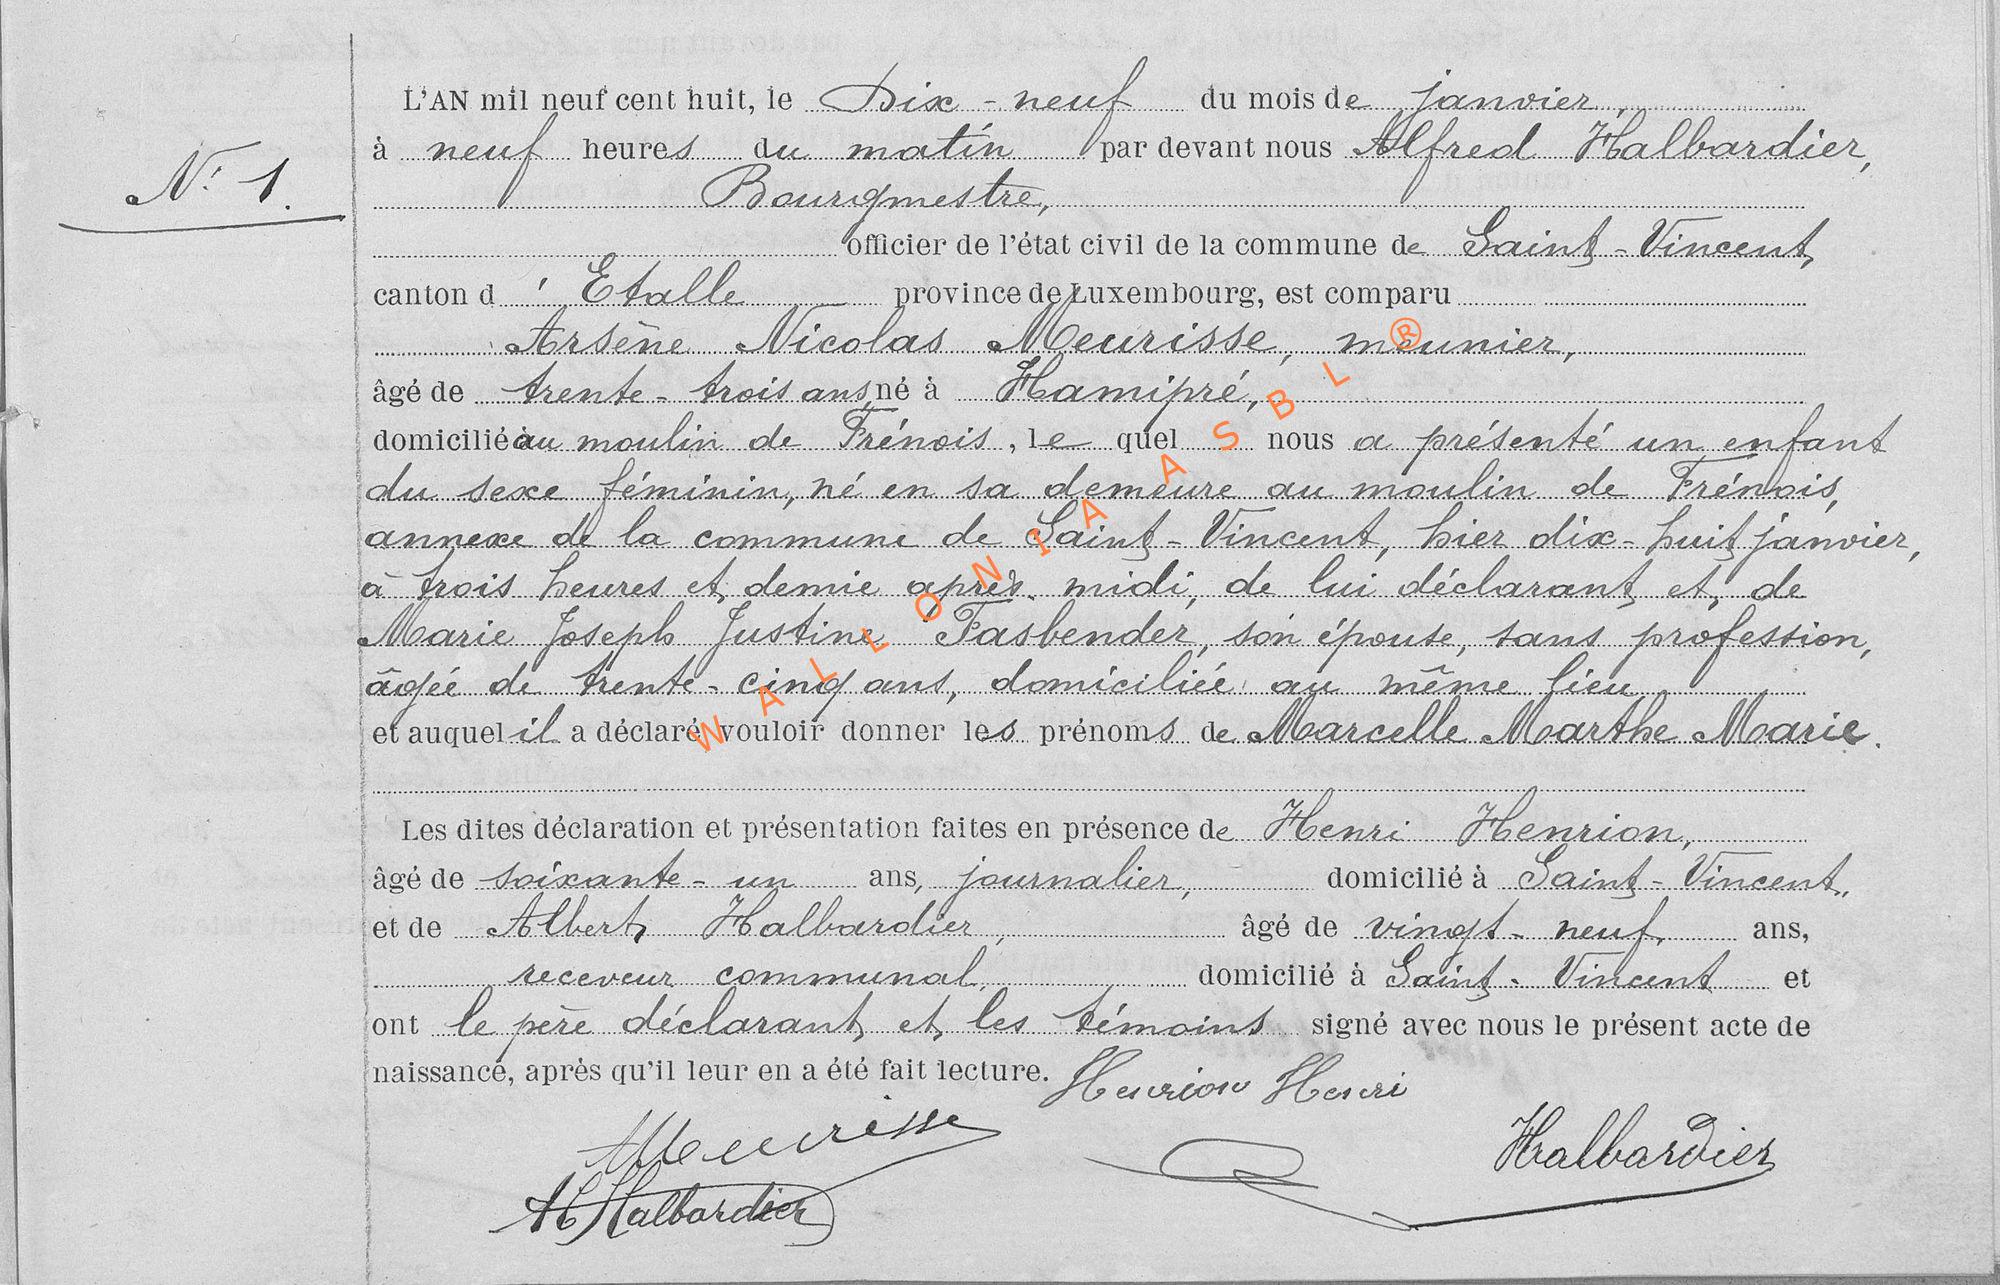 L'AN mil neuf cent huit, le Dix-neuf du mois de janvier,
à neuf heures du matin par devant nous Alfred Halbardier,
N.° 1.
Bourgmestre,
officier de l'état civil de la commune de Saint-Vincent,
canton d'Etalle province de Luxembourg, est comparu
Arsène Nicolas Meurisse, meunier,
âgé de trente-trois ans, né à Hamipré,
domicilié au moulin de Frénois, le quel nous a présenté un enfant
du sexe féminin, né en sa demeure au moulin de Frénois,
annexe de la commune de Saint-Vincent, hier dix-huit janvier,
à trois heures et demie après-midi, de lui déclarant et de
Marie Joseph Justine Fasbender, son épouse, sans profession,
âgée de trente-cinq ans, domiciliée au même lieu
et auquel il a déclaré vouloir donner les prénoms de Marcelle Marthe Marie.
Les dites déclaration et présentation faites en présence de Henri Henrion,
âgé de soixante-un ans, journalier, domicilié à Saint-Vincent,
et de Albert Halbardier, âgé de vingt-neuf ans,
receveur communal, domicilié à Saint-Vincent et
ont le père déclarant et les témoins signé avec nous le présent acte de
naissance, après qu'il leur en a été fait lecture.
Henrion Henri
AMeurisse
Halbardier
A Halbardier
WALLONIA ASBL ®